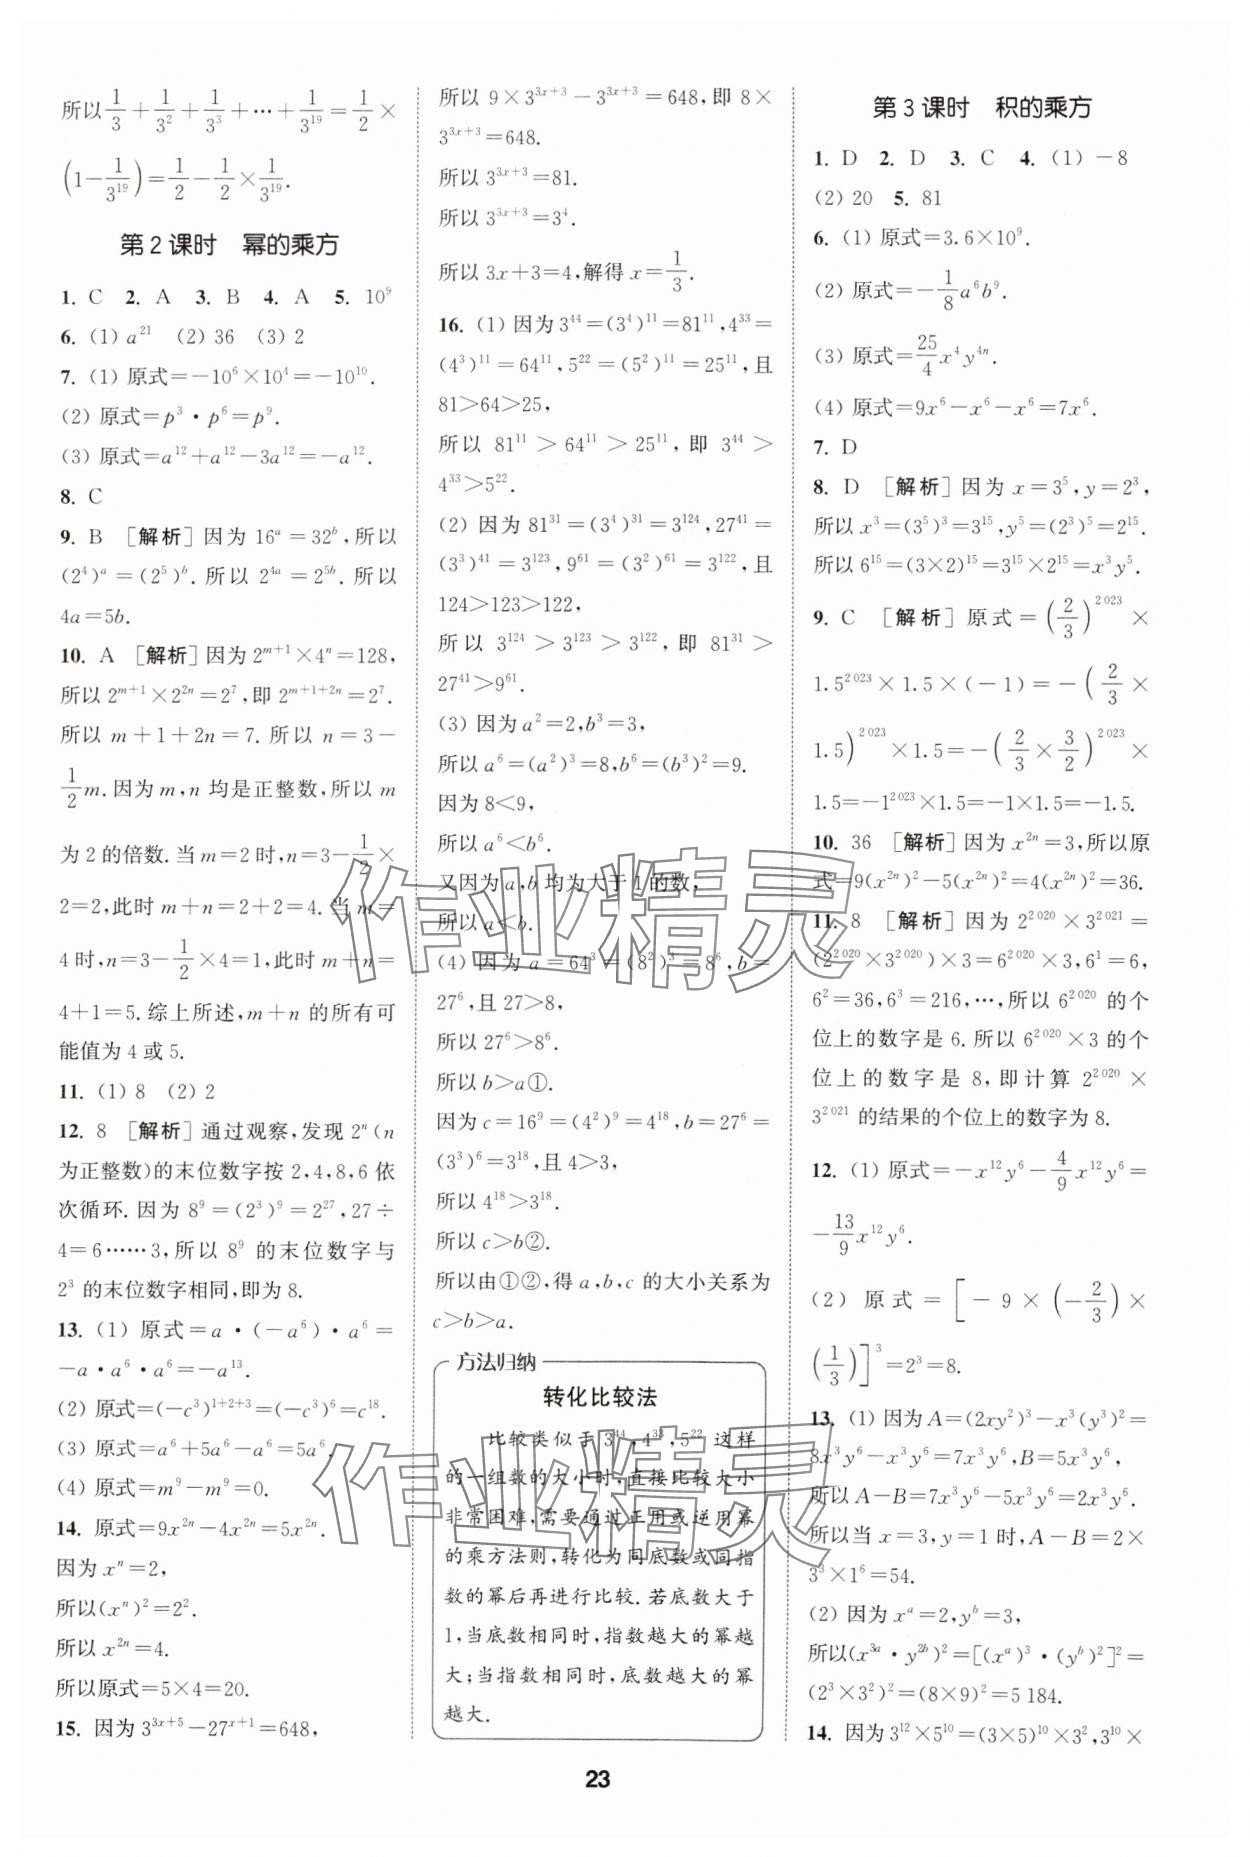 所以1/3+1/3²+1/3³+…+1/3¹⁹=1/2×
(1-1/3¹⁹)=1/2-1/2×1/3¹⁹.
第2课时 幂的乘方
1. C 2. A 3. B 4. A 5. 10⁹
6. (1) a²¹ (2) 36 (3) 2
7. (1) 原式=-10⁶×10⁴=-10¹⁰.
(2) 原式=p³·p⁶=p⁹.
(3) 原式=a¹²+a¹²-3a¹²=-a¹².
8. C
9. B [解析]因为16ᵃ=32ᵇ,所以
(2⁴)ᵃ=(2⁵)ᵇ.所以2⁴ᵃ=2⁵ᵇ.所以
4a=5b.
10. A [解析]因为2ᵐ⁺¹×4ⁿ=128,
所以2ᵐ⁺¹×2²ⁿ=2⁷,即2ᵐ⁺¹⁺²ⁿ=2⁷.
所以m+1+2n=7.所以n=3-
1/2m.因为m,n均是正整数,所以m
为2的倍数.当m=2时,n=3-1/2×
2=2,此时m+n=2+2=4.当m=
4时,n=3-1/2×4=1,此时m+n=
4+1=5.综上所述,m+n的所有可
能值为4或5.
11. (1) 8 (2) 2
12. 8 [解析]通过观察,发现2ⁿ(n
为正整数)的末位数字按2,4,8,6依
次循环.因为8⁹=(2³)⁹=2²⁷,27÷
4=6……3,所以8⁹的末位数字与
2³的末位数字相同,即为8.
13. (1) 原式=a·(-a⁶)·a⁶=
-a·a⁶·a⁶=-a¹³.
(2) 原式=(-c³)¹⁺²⁺³=(-c³)⁶=c¹⁸.
(3) 原式=a⁶+5a⁶-a⁶=5a⁶.
(4) 原式=m⁹-m⁹=0.
14. 原式=9x²ⁿ-4x²ⁿ=5x²ⁿ.
因为xⁿ=2,
所以(xⁿ)²=2².
所以x²ⁿ=4.
所以原式=5×4=20.
15. 因为3³ˣ⁺⁵-27ˣ⁺¹=648,
所以9×3³ˣ⁺³-3³ˣ⁺³=648,即8×
3³ˣ⁺³=648.
所以3³ˣ⁺³=81.
所以3³ˣ⁺³=3⁴.
所以3x+3=4,解得x=1/3.
16. (1) 因为3⁴⁴=(3⁴)¹¹=81¹¹,4³³=
(4³)¹¹=64¹¹,5²²=(5²)¹¹=25¹¹,且
81>64>25,
所以81¹¹>64¹¹>25¹¹,即3⁴⁴>
4³³>5²².
(2) 因为81³¹=(3⁴)³¹=3¹²⁴,27⁴¹=
(3³)⁴¹=3¹²³,9⁶¹=(3²)⁶¹=3¹²²,且
124>123>122,
所以3¹²⁴>3¹²³>3¹²²,即81³¹>
27⁴¹>9⁶¹.
(3) 因为a²=2,b³=3,
所以a⁶=(a²)³=8,b⁶=(b³)²=9.
因为8<9,
所以a⁶<b⁶.
又因为a,b均为大于1的数,
所以a<b.
(4) 因为a=64³=(8²)³=8⁶,b=
27⁶,且27>8,
所以27⁶>8⁶.
所以b>a①.
因为c=16⁹=(4²)⁹=4¹⁸,b=27⁶=
(3³)⁶=3¹⁸,且4>3,
所以4¹⁸>3¹⁸.
所以c>b②.
所以由①②,得a,b,c的大小关系为
c>b>a.
方法归纳
转化比较法
比较类似于3⁴⁴,4³³,5²²这样
的一组数的大小时,直接比较大小
非常困难,需要通过正用或逆用幂
的乘方法则,转化为同底数或同指
数的幂后再进行比较.若底数大于
1,当底数相同时,指数越大的幂越
大;当指数相同时,底数越大的幂
越大.
第3课时 积的乘方
1. D 2. D 3. C 4. (1) -8
(2) 20 5. 81
6. (1) 原式=3.6×10⁹.
(2) 原式=-1/8a⁶b⁹.
(3) 原式=25/4x⁴y⁴ⁿ.
(4) 原式=9x⁶-x⁶-x⁶=7x⁶.
7. D
8. D [解析]因为x=3⁵,y=2³,
所以x³=(3⁵)³=3¹⁵,y⁵=(2³)⁵=2¹⁵.
所以6¹⁵=(3×2)¹⁵=3¹⁵×2¹⁵=x³y⁵.
9. C [解析]原式=(2/3)²⁰²³×
1.5²⁰²³×1.5×(-1)=-(2/3×
1.5)²⁰²³×1.5=-(2/3×3/2)²⁰²³×
1.5=-1²⁰²³×1.5=-1×1.5=-1.5.
10. 36 [解析]因为x²ⁿ=3,所以原
式=9(x²ⁿ)²-5(x²ⁿ)²=4(x²ⁿ)²=36.
11. 8 [解析]因为2²⁰²⁰×3²⁰²¹=
(2²⁰²⁰×3²⁰²⁰)×3=6²⁰²⁰×3,6¹=6,
6²=36,6³=216,…,所以6²⁰²⁰的个
位上的数字是6.所以6²⁰²⁰×3的个
位上的数字是8,即计算2²⁰²⁰×
3²⁰²¹的结果的个位上的数字为8.
12. (1) 原式=-x¹²y⁶-4/9x¹²y⁶=
-13/9x¹²y⁶.
(2) 原式=[-9×(-2/3)×
(1/3)]³=2³=8.
13. (1) 因为A=(2xy²)³-x³(y³)²=
8x³y⁶-x³y⁶=7x³y⁶,B=5x³y⁶,
所以A-B=7x³y⁶-5x³y⁶=2x³y⁶.
所以当x=3,y=1时,A-B=2×
3³×1⁶=54.
(2) 因为xᵃ=2,yᵇ=3,
所以(x³ᵃ·y²ᵇ)²=[(xᵃ)³·(yᵇ)²]²=
(2³×3²)²=(8×9)²=5184.
14. 因为3¹²×5¹⁰=(3×5)¹⁰×3²,3¹⁰×
23
作业精灵
作业精灵